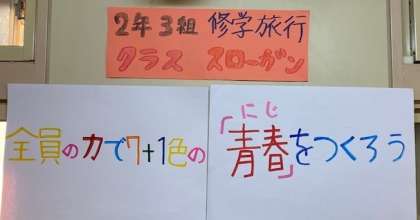 2年3組 修学旅行
クラス スローガン
全員の力で7+1色の
「青春」をつくろう
にじ